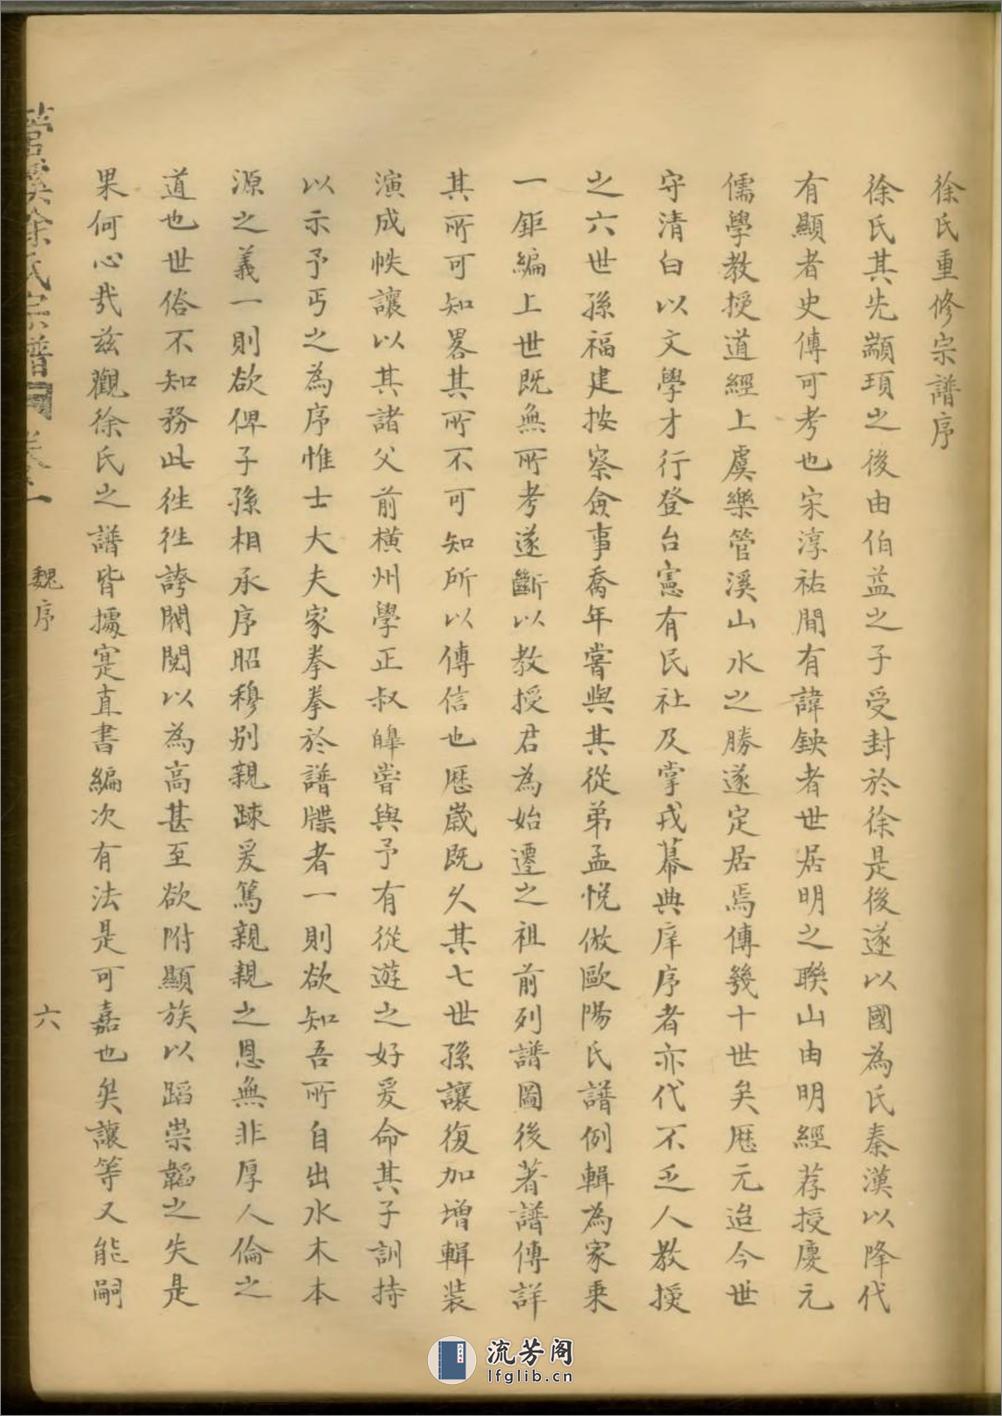 徐氏重修宗譜序
徐氏其先顓頊之後由伯益之子受封於徐是後遂以國為氏秦漢以降代
有顯者史傳可考也宋淳祐間有諱鉠者世居明之聯山由明經荐授慶元
儒學教授道經上虞樂管溪山水之勝遂定居焉傳幾十世矣厯元迨今世
守清白以文學才行登台憲有民社及掌戎幕典庠序者亦代不乏人教授
之六世孫福建按察僉事喬年嘗與其從弟孟悅倣歐陽氏譜例輯為家乘
一鉅編上世既無所考遂斷以教授君為始遷之祖前列譜圖後著譜傳詳
其所可知畧其所不可知所以傳信也厯歲既久其七世孫讓復加增輯裝
演成帙讓以其諸父前橫州學正叔皞嘗與予有從遊之好爰命其子訓持
以示予丐之為序惟士大夫家拳拳於譜牒者一則欲知吾所自出水木本
源之義一則欲俾子孫相承序昭穆別親踈爰篤親親之恩無非厚人倫之
道也世俗不知務此徃徃誇閥閱以為高甚至欲附顯族以蹈崇韜之失是
果何心哉兹觀徐氏之譜皆據寔直書編次有法是可嘉也矣讓等又能嗣
管溪徐氏宗譜 卷一 魏序 六
流芳阁
lfglib.cn